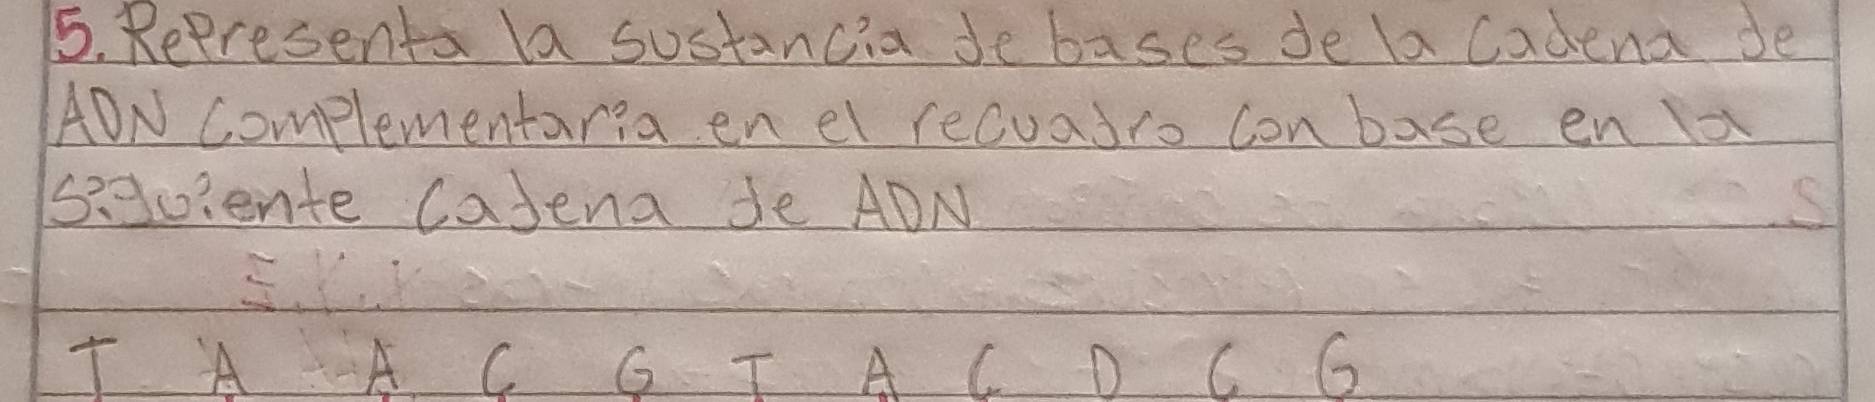 5. Representa la sustancia de bases de la cadena de
ADN complementaria en el recuadro con base en la
siguiente cadena de ADN
T A A C G T A C D C G